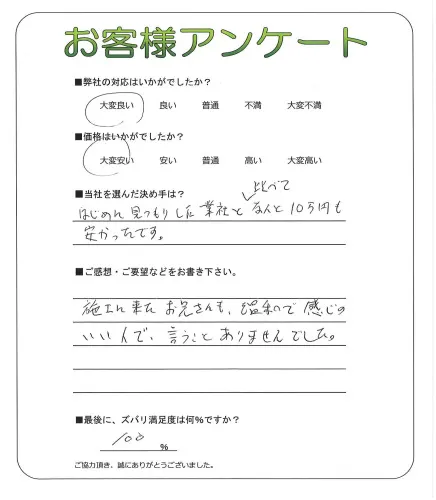 お客様アンケート
■弊社の対応はいかがでしたか?
大変良い 良い 普通 不満 大変不満
■価格はいかがでしたか?
大変安い 安い 普通 高い 大変高い
■当社を選んだ決め手は?
比べて
はじめに見つもりした業社となんと10万円も
安かったです。
■ご感想・ご要望などをお書き下さい。
施工に来たお兄さんも、温和で感じの
いい人で、言うことありませんでした。
■最後に、ズバリ満足度は何%ですか?
100
%
ご協力頂き、誠にありがとうございました。